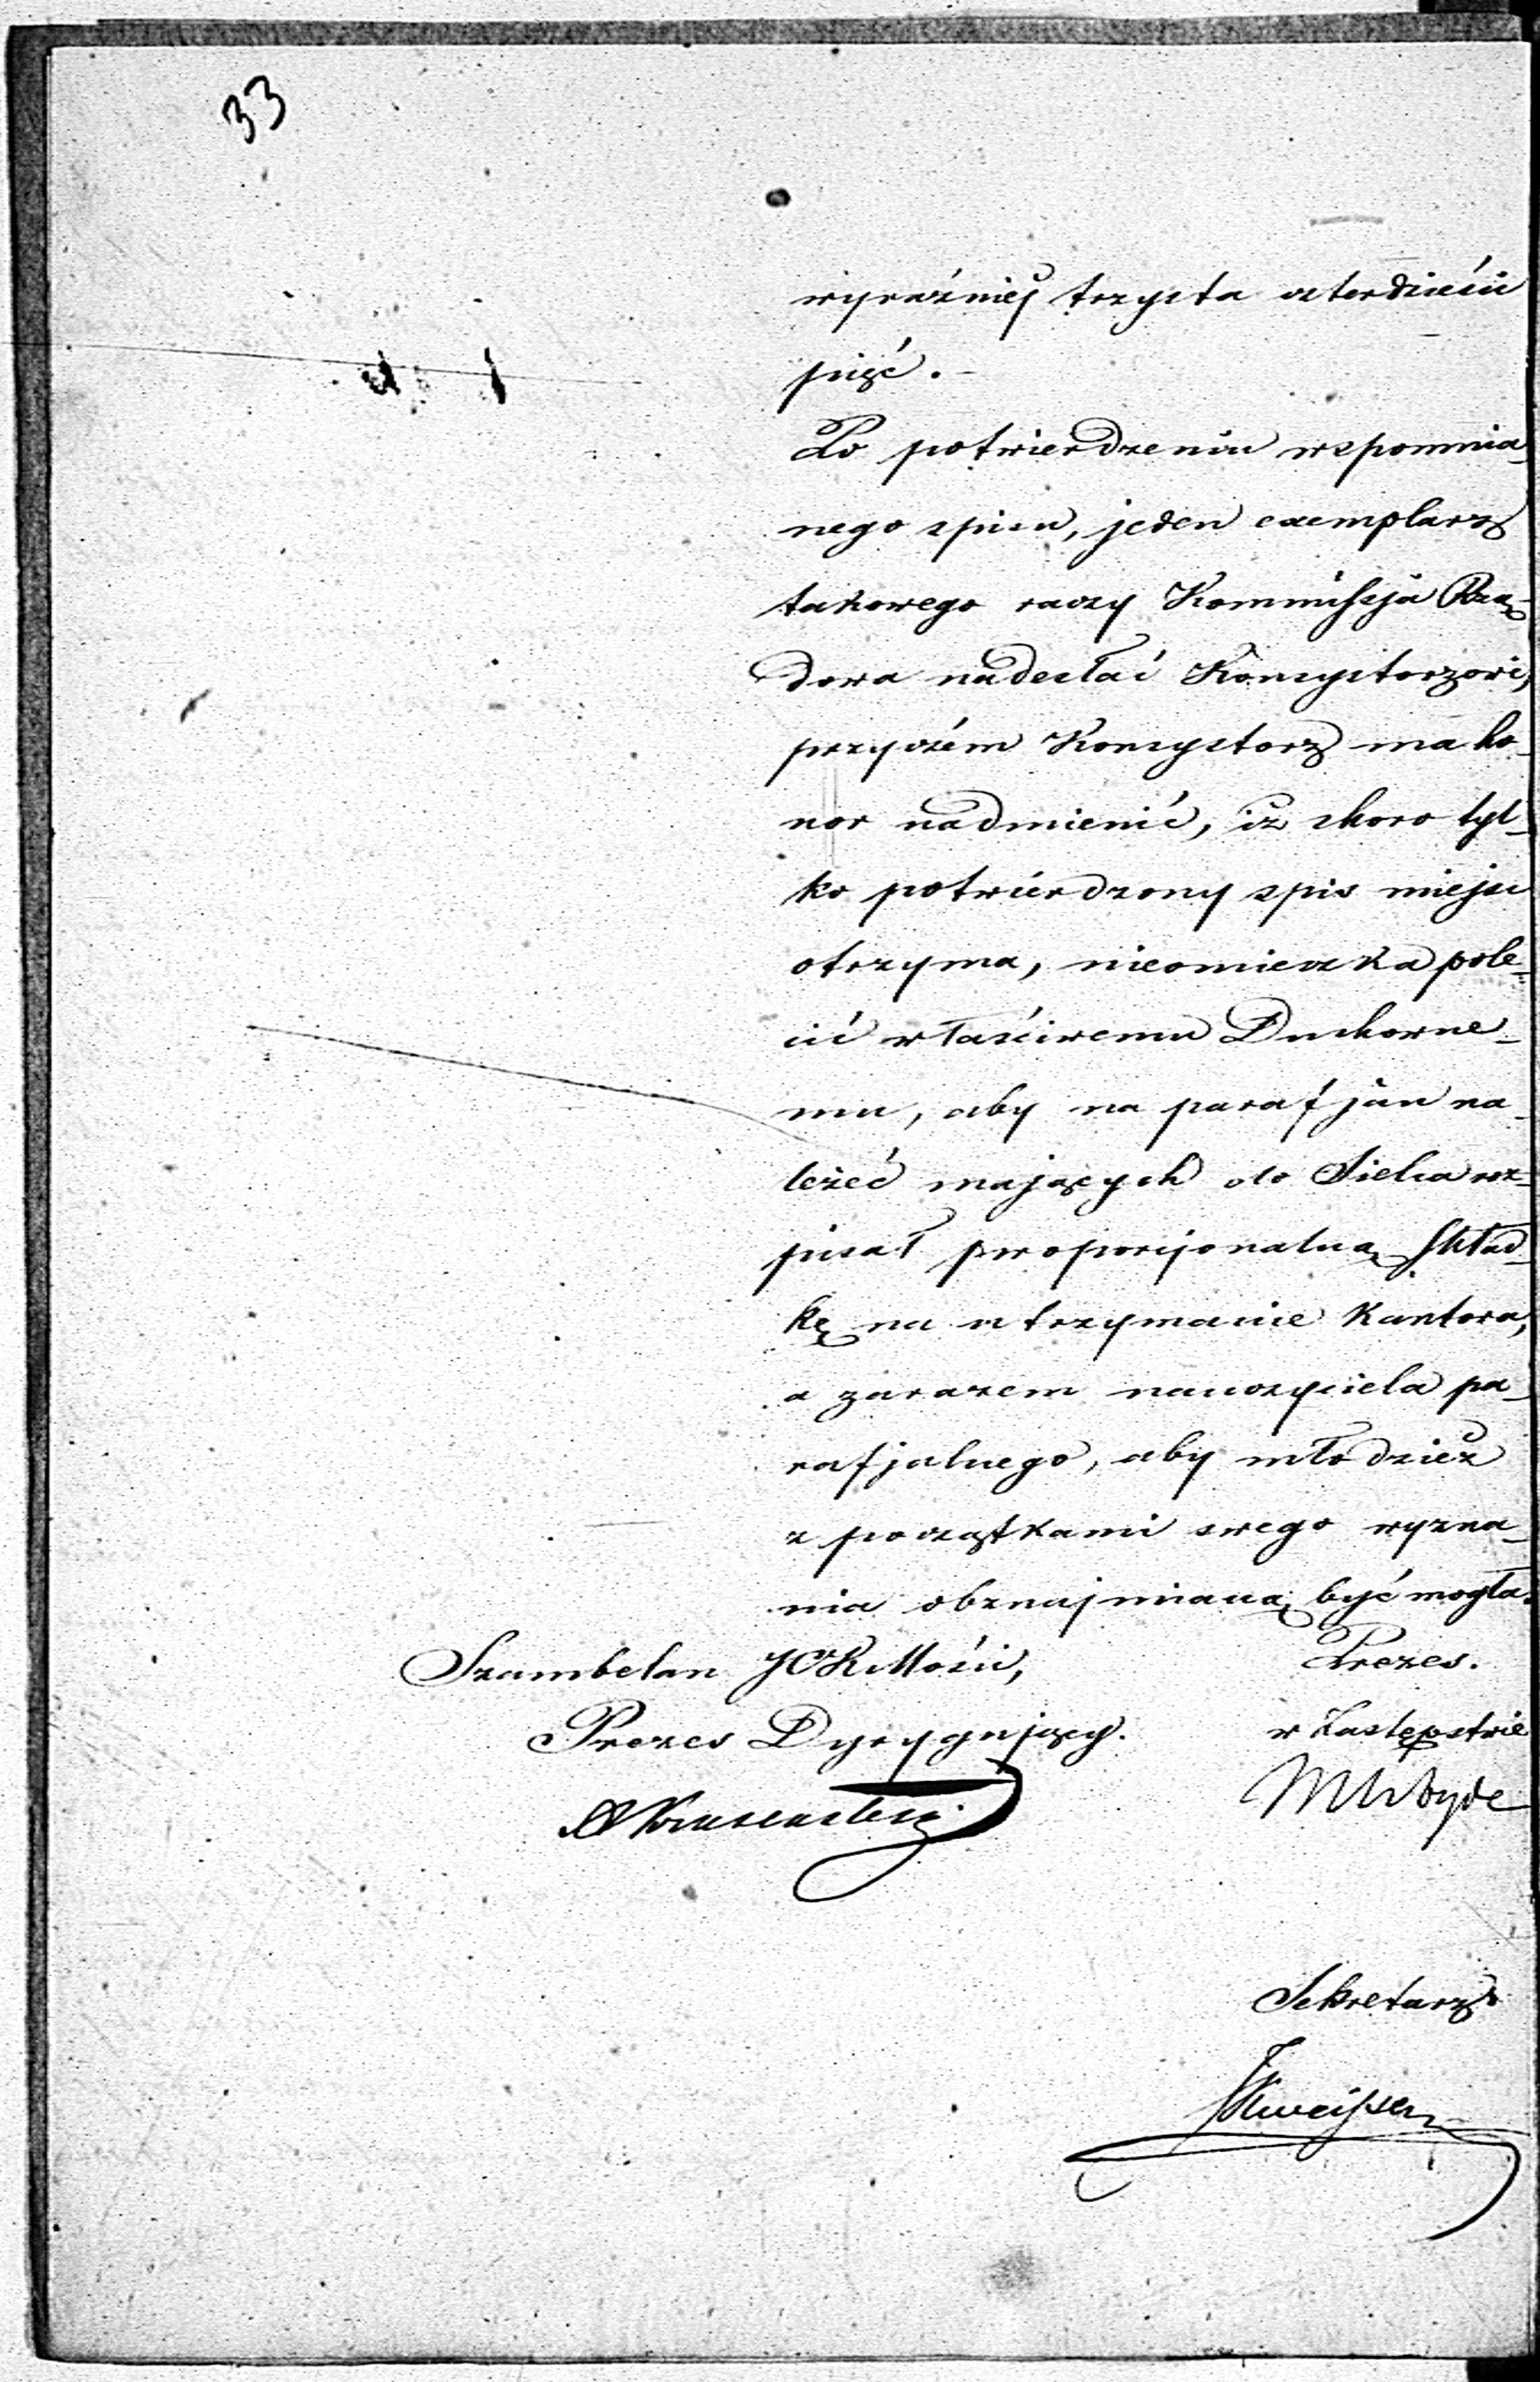 33
wyraźniej trzysta czterdzieści
pięć. -
Po potwierdzeniu wspomnia-
nego spisu, jeden exemplarz
takowego raczy Kommissja Rzą-
dowa nadesłać Konsystorzowi,
przyczém Konsystorz ma ho-
nor nadmienić, iż skoro tyl-
ko potwierdzony spis miejsc
otrzyma, nieomieszka pole-
cić właściwemu Duchowne-
mu, aby na parafjan na-
leżeć mających do Sielca roz-
pisał proporcjonalną skład-
kę na utrzymanie Kantora,
a zarazem nauczyciela pa-
rafjalnego, aby młodzież
z początkami swego wyzna-
nia obznajmianą być mogła.
Szambelan JCKMości,
Prezes Dyrygujący.
Prezes.
w Zastępstwie
Sekretarz